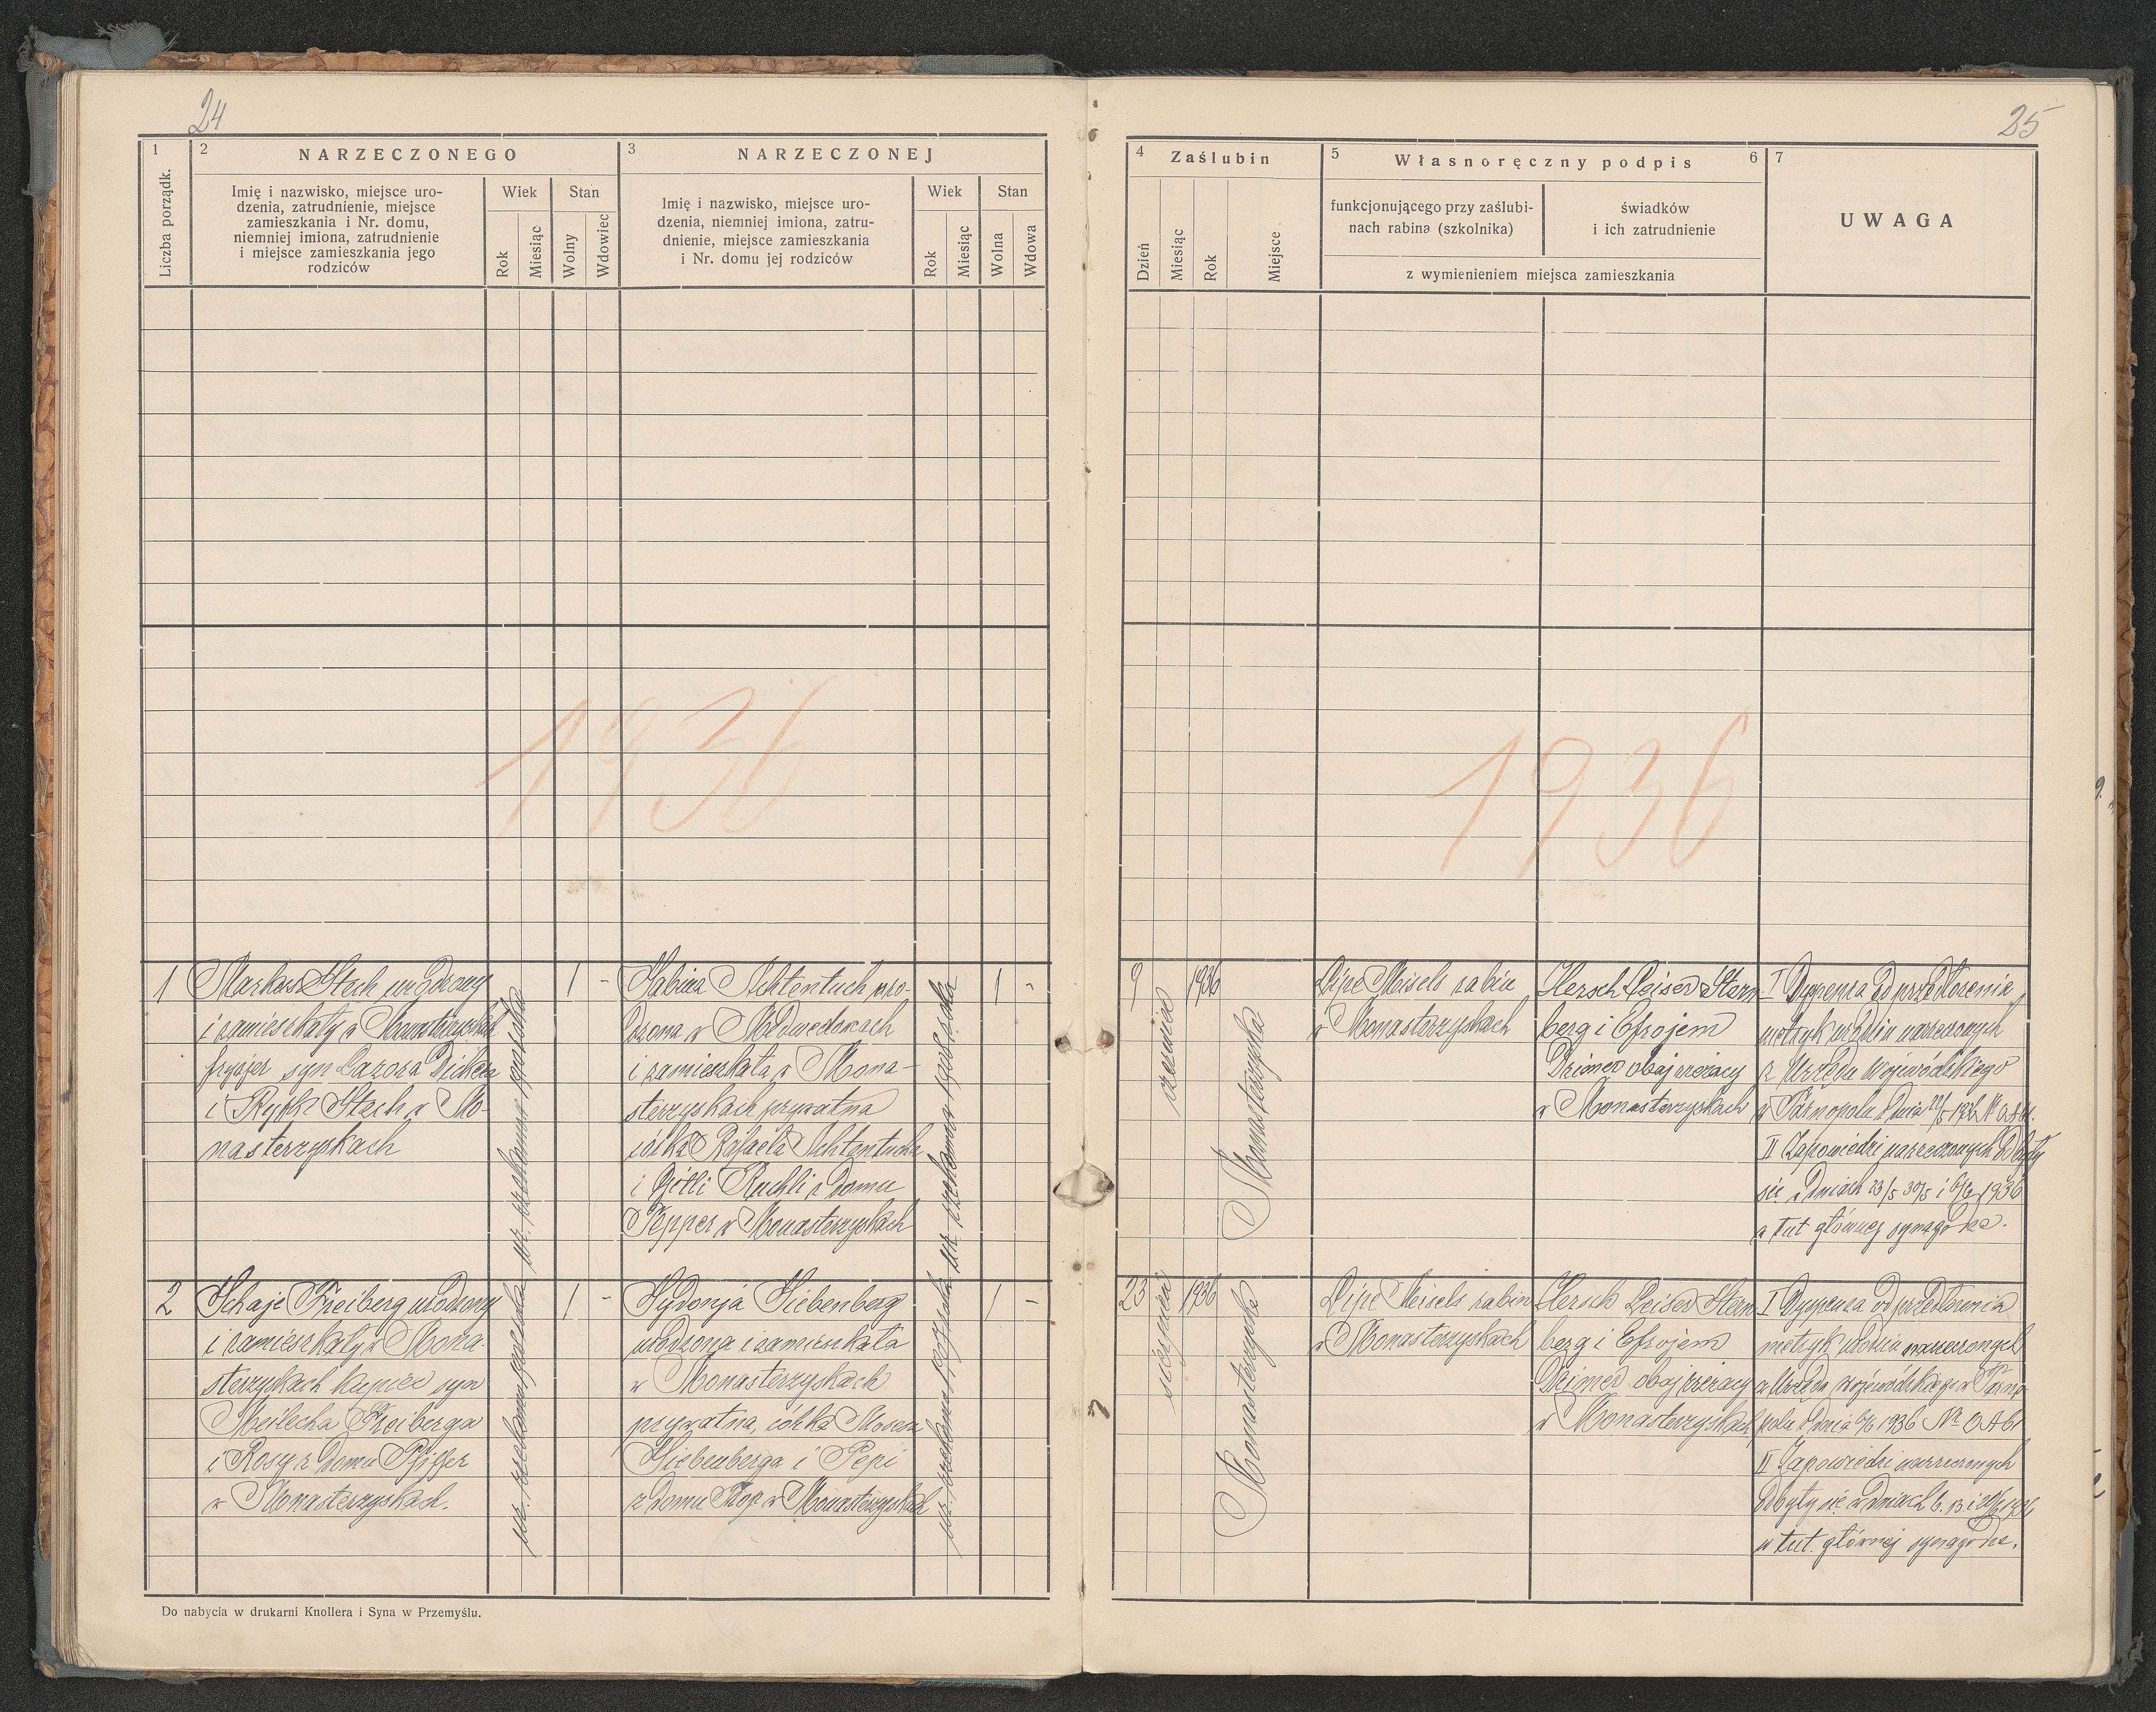 24
1
2
NARZECZONEGO
3
NARZECZONEJ
Liczba porządk.
Imię i nazwisko, miejsce uro-
dzenia, zatrudnienie, miejsce
zamieszkania i Nr. domu,
niemniej imiona, zatrudnienie
i miejsce zamieszkania jego
rodziców
Wiek
Stan
Rok
Miesiąc
Wolny
Wdowiec
Imię i nazwisko, miejsce uro-
dzenia, niemniej imiona, zatru-
dnienie, miejsce zamieszkania
i Nr. domu jej rodziców
Wiek
Stan
Rok
Miesiąc
Wolna
Wdowa
1936
1
Markus Stech urodzony
i zamieszkały w Monasterzyskach
fryzjer syn Lazora
i Stech w Mo-
nasterzyskach
1 -
Sabina Achtentuch uro-
dzona w
i zamieszkała w Mona-
sterzyskach prywatna
córka Rafaela Achtentucha
i Gitli Ruchli z domu
Pepper w Monasterzyskach
1 -
2
Schaje Freiberg urodzony
i zamieszkały w Mona-
sterzyskach kupiec syn
Meilecha Freiberga
i Rosy z domu Pfiffer
w Monasterzyskach.
1 -
Sydonja Siebenberg
urodzona i zamieszkała
w Monasterzyskach
prywatna, córka Mosesa
Siebenberga i Pepi
z domu w Monasterzyskach
1 -
Do nabycia w drukarni Knollera i Syna w Przemyślu.
25
4
Zaślubin
5
Własnoręczny podpis
6
7
Dzień
Miesiąc
Rok
Miejsce
funkcjonującego przy zaślubi-
nach rabina (szkolnika)
świadków
i ich zatrudnienie
z wymienieniem miejsca zamieszkania
UWAGA
1936
9
czerwca
1936
Monasterzyska
Lipe Meisels rabin
w Monasterzyskach
Hersch Leiser Stern-
berg i Efrojem
obaj
w Monasterzyskach
I Dyspenza od przedłożenia
metryk urodzin narzeczonych
z Urzędu Wojewódzkiego
w Tarnopolu z dnia
II Zapowiedzi narzeczonych odbyły
się w dniach 23/5 30/5 i 6/6 1936
w tut głównej synagodze.
23
czerwca
1936
Monasterzyska
Lipe Meisels rabin
w Monasterzyskach
Hersch Leiser Stern-
berg i Efrojem
obaj
w Monasterzyskach
I Dyspenza od przedłożenia
metryk urodzin narzeczonych
z Urzędu wojewódzkiego w Tarno-
polu z dnia 1936 Nr
II Zapowiedzi narzeczonych
odbyły się w dniach 6. 13 i 20/6 1936
w tut. głównej synagodze.